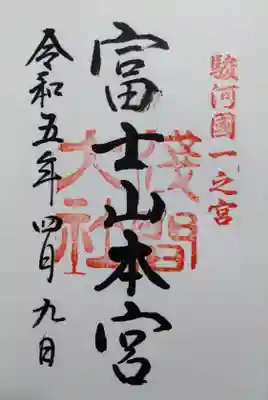 駿河國一之宮
富士山本宮
淺間大社
令和五年四月九日